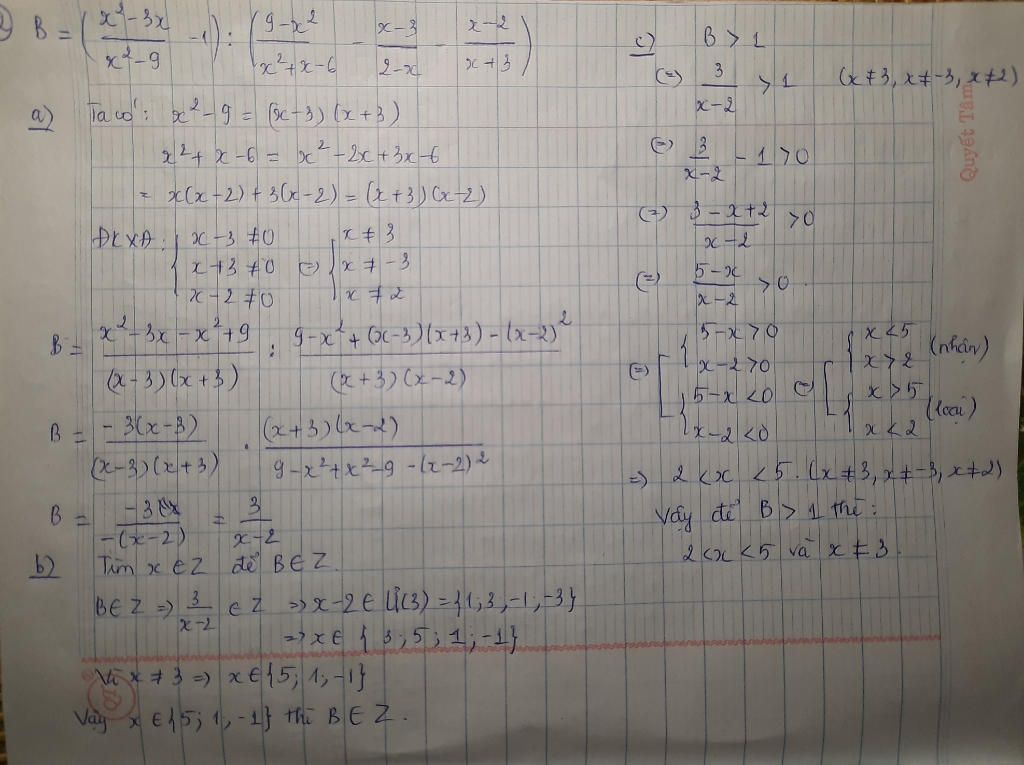 2) B = (x² - 3x / x² - 9 - 1) : (9 - x² / x² + x - 6 - x - 3 / 2 - x - x - 2 / x + 3)
a) Ta có: x² - 9 = (x - 3)(x + 3)
x² + x - 6 = x² - 2x + 3x - 6
= x(x - 2) + 3(x - 2) = (x + 3)(x - 2)
ĐKXĐ: { x - 3 ≠ 0 ⇔ { x ≠ 3
x + 3 ≠ 0 x ≠ -3
x - 2 ≠ 0 x ≠ 2
B = x² - 3x - x² + 9 / (x - 3)(x + 3) : 9 - x² + (x - 3)(x + 3) - (x - 2)² / (x + 3)(x - 2)
B = -3(x - 3) / (x - 3)(x + 3) . (x + 3)(x - 2) / 9 - x² + x² - 9 - (x - 2)²
B = -3 / -(x - 2) = 3 / x - 2
b) Tìm x ∈ Z để B ∈ Z.
B ∈ Z => 3 / x - 2 ∈ Z => x - 2 ∈ Ư(3) = {1; 3; -1; -3}
=> x ∈ {3; 5; 1; -1}
Vì x ≠ 3 => x ∈ {5; 1; -1}
Vậy x ∈ {5; 1; -1} thì B ∈ Z.
c) B > 1
⇔ 3 / x - 2 > 1 (x ≠ 3, x ≠ -3, x ≠ 2)
⇔ 3 / x - 2 - 1 > 0
⇔ 3 - x + 2 / x - 2 > 0
⇔ 5 - x / x - 2 > 0.
⇔ [ { 5 - x > 0 ⇔ [ { x < 5 (nhận)
x - 2 > 0 x > 2
{ 5 - x < 0 { x > 5 (loại)
x - 2 < 0 x < 2
=> 2 < x < 5. (x ≠ 3, x ≠ -3, x ≠ 2)
Vậy để B > 1 thì:
2 < x < 5 và x ≠ 3.
Quyết Tâm